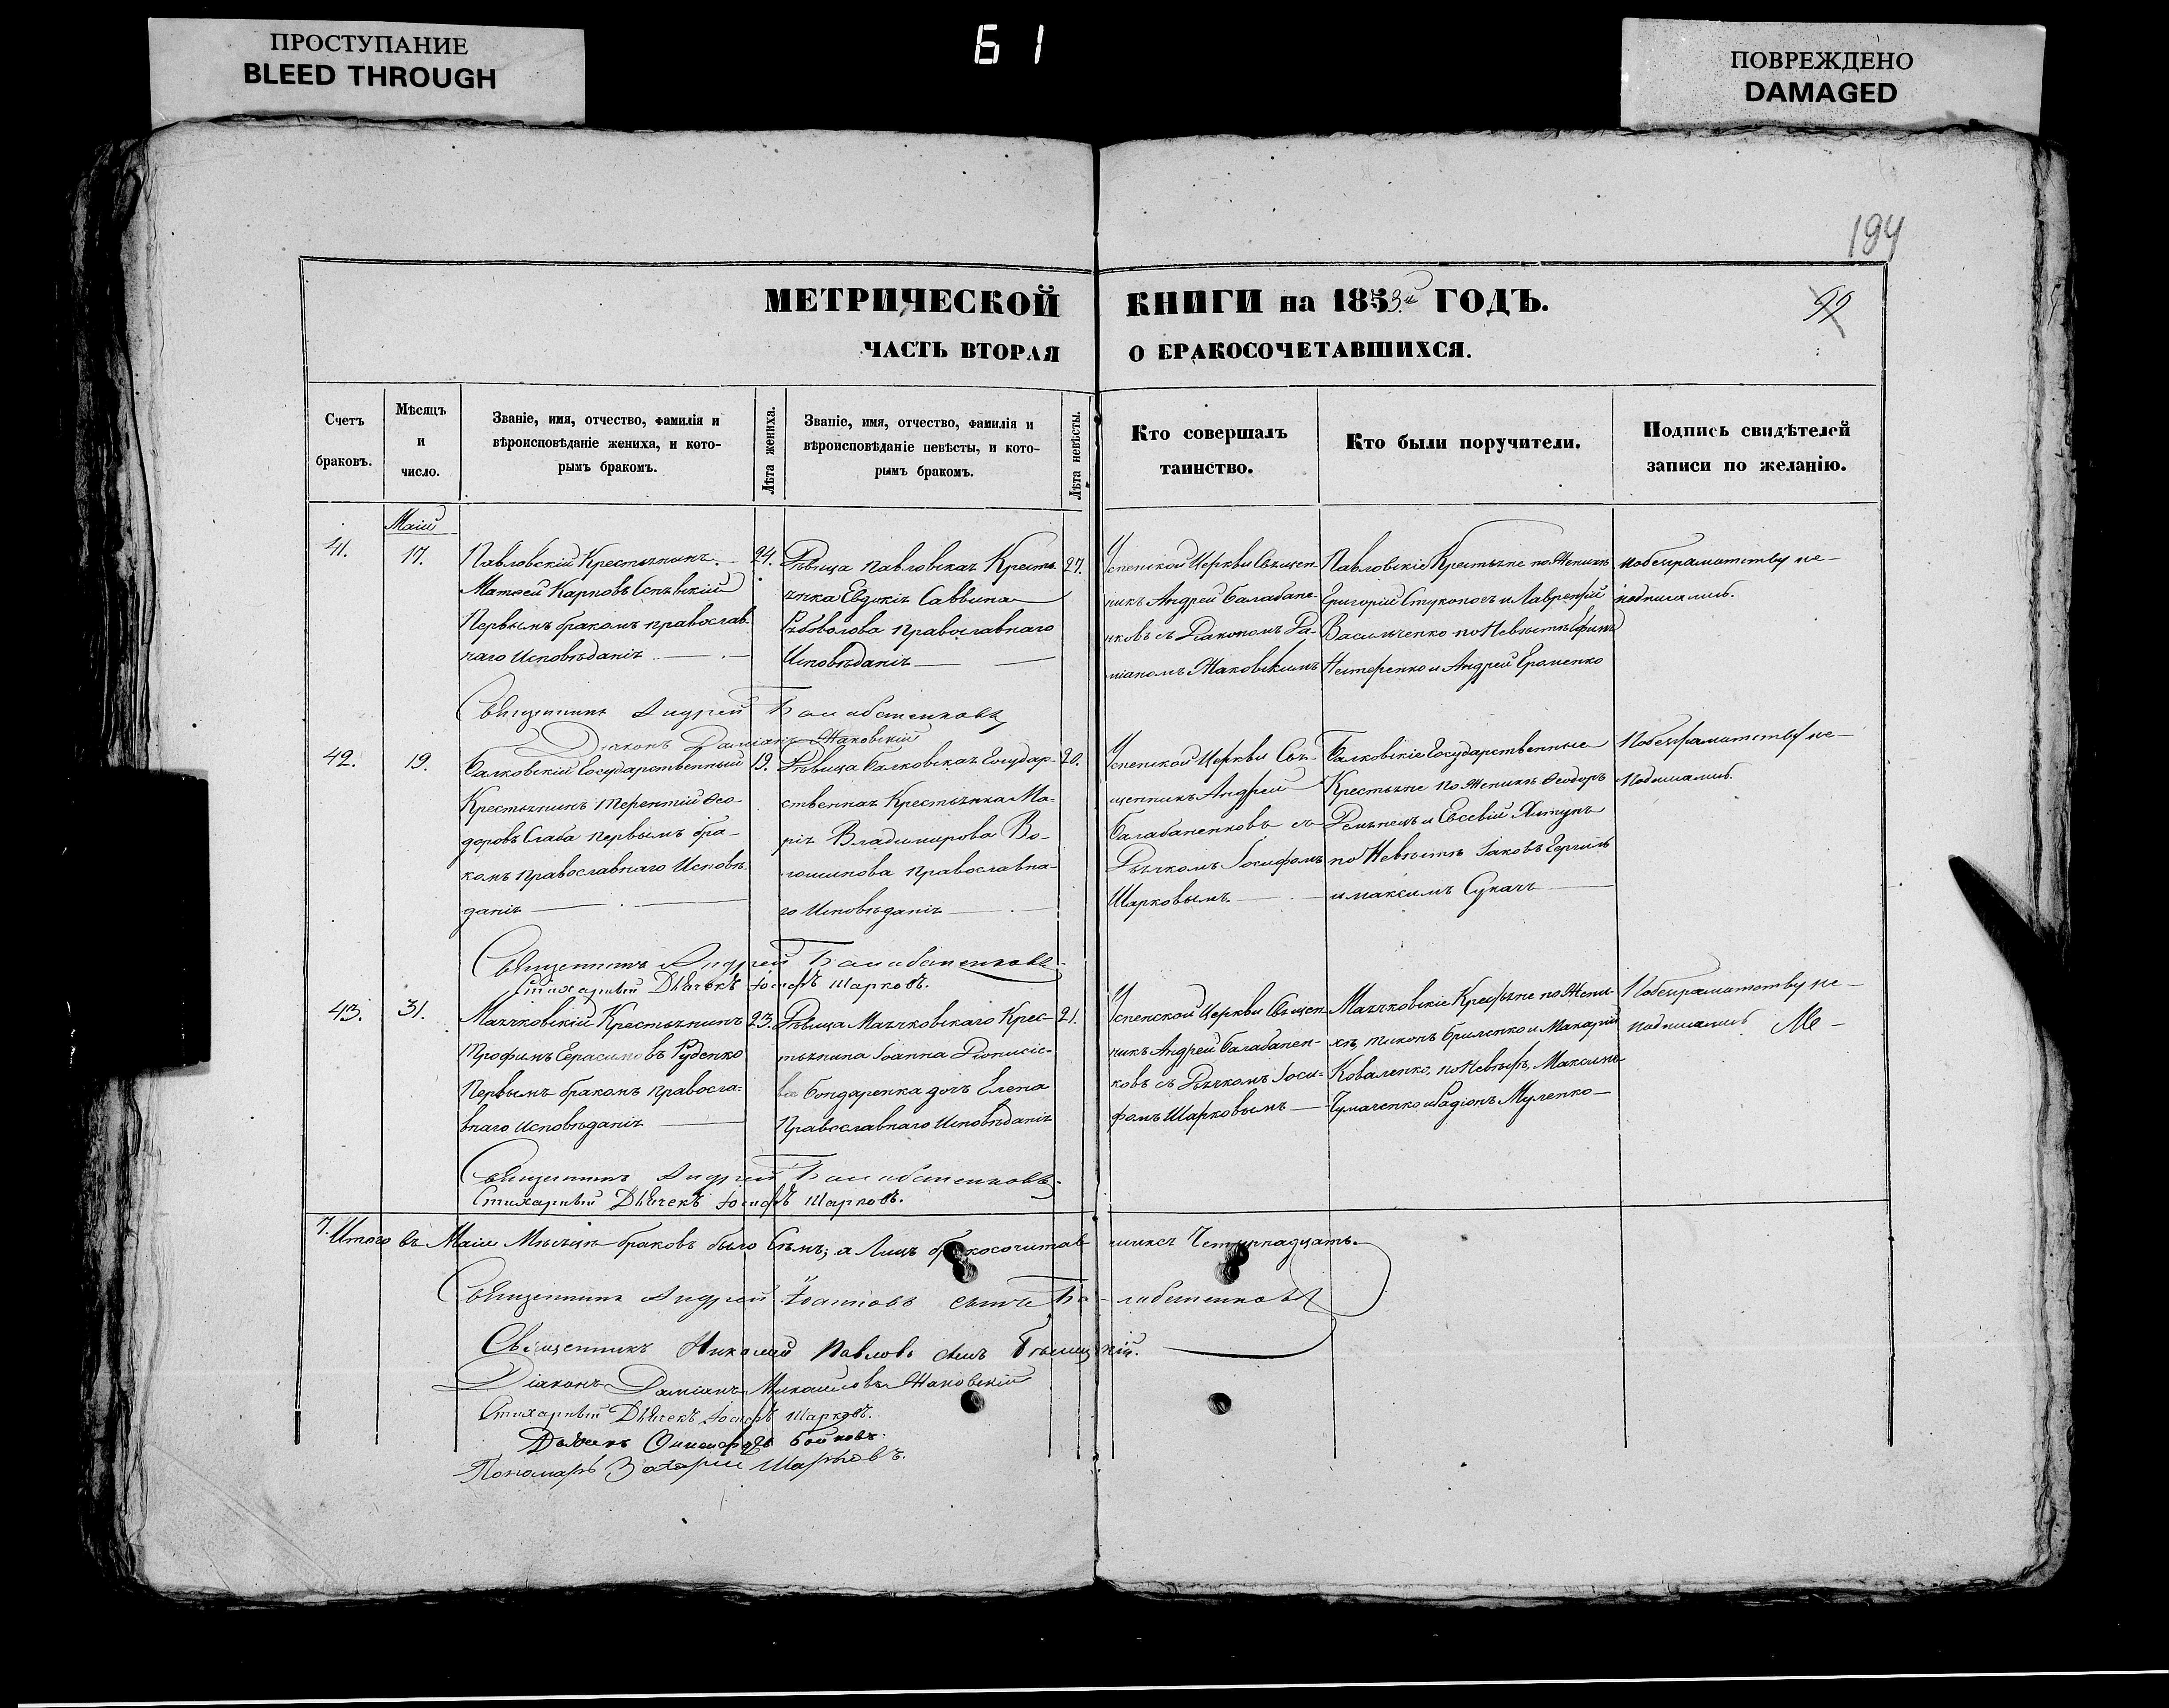 ПРОСТУПАНИЕ
BLEED THROUGH
61
ПОВРЕЖДЕНО
DAMAGED
194
МЕТРИЧЕСКОЙ КНИГИ на 1853й ГОДЪ.
99
ЧАСТЬ ВТОРАЯ О БРАКОСОЧЕТАВШИХСЯ.
Счетъ
браковъ.
Мѣсяцъ
и
число.
Званіе, имя, отчество, фамилія и
вѣроисповѣданіе жениха, и кото-
рымъ бракомъ.
Лѣта жениха.
Званіе, имя, отчество, фамилія и
вѣроисповѣданіе невѣсты, и кото-
рымъ бракомъ.
Лѣта невѣсты.
Кто совершалъ
таинство.
Кто были поручители.
Подпись свидѣтелей
записи по желанію.
Маій
41.
17.
Павловскій Крестьянинъ
Матѳей Карповъ
Первымъ бракомъ православ-
наго Исповѣданія
24.
Дѣвица Павловская Кресть-
янка Евдокія Саввина
православнаго
Исповѣданія
27.
Успенской Церкви Священ-
никъ Андрей Балабане-
нковъ съ Діакономъ Да-
міаномъ Жаковскимъ
Павловскіе Крестьяне по Женихѣ
Григорій Стуконосъ и Лаврентій
Васильченко по Невѣстѣ
Нестеренко и Андрей Ероменко
по безграматству не-
подписались.
Священникъ Андрей Балабаненковъ
Діаконъ Даміанъ Жаковскій
42.
19.
Балковскій Государственный
Крестьянинъ Терентій Ѳео-
доровъ Слаба первымъ бра-
комъ православнаго Исповѣ-
данія
19.
Дѣвица Балковская Государ-
ственная Крестьянка Ма-
рія Владимирова Во-
лошинова православна-
го Исповѣданія
20.
Успенской Церкви Свя-
щенникъ Андрей
Балабаненковъ съ
Дьячкомъ Іосифомъ
Шарковымъ
Балковскіе Государственные
Крестьяне по Женихѣ Ѳеодоръ
и Евсевій
по Невѣстѣ Іаковъ
и Максимъ Сукачъ
По безграматству не-
подписались.
Священникъ Андрей Балабаненковъ
Стихарный Дьячекъ Іосифъ Шарковъ.
43.
31.
Маячковскій Крестьянинъ
Трофимъ Герасимовъ Руденко
Первымъ бракомъ правосла-
внаго Исповѣданія
23.
Дѣвица Маячковскаго Крес-
тьянина Іоанна Діонисіе-
ва Бондаренка дочь Елена
Православнаго Исповѣданія
21.
Успенской Церкви Священ-
никъ Андрей Балабанен-
ковъ съ Дьячкомъ Іоси-
фомъ Шарковымъ
Маячковскіе Крестьяне по Жени-
хѣ, Тихонъ Бриленко и Макарій
Коваленко, по Невѣстѣ, Максимъ
Чумаченко и Радіонъ Муленко
По безграматству не-
подписались
Священникъ Андрей Балабаненковъ
Стихарный Дьячекъ Іосифъ Шарковъ.
7. Итого въ Маіи Мѣсяцѣ браковъ было Семь; а Лицъ бракосочетавшихся Четырнадцать.
Священникъ Андрей Іоанновъ сынъ Балабаненковъ
Священникъ Николай Павловъ сынъ
Діаконъ Даміанъ Михаиловъ Жаковскій
Стихарный Дьячекъ Іосифъ Шарковъ.
Дьячекъ Бойковъ.
Пономарь Захарій Шарковъ.